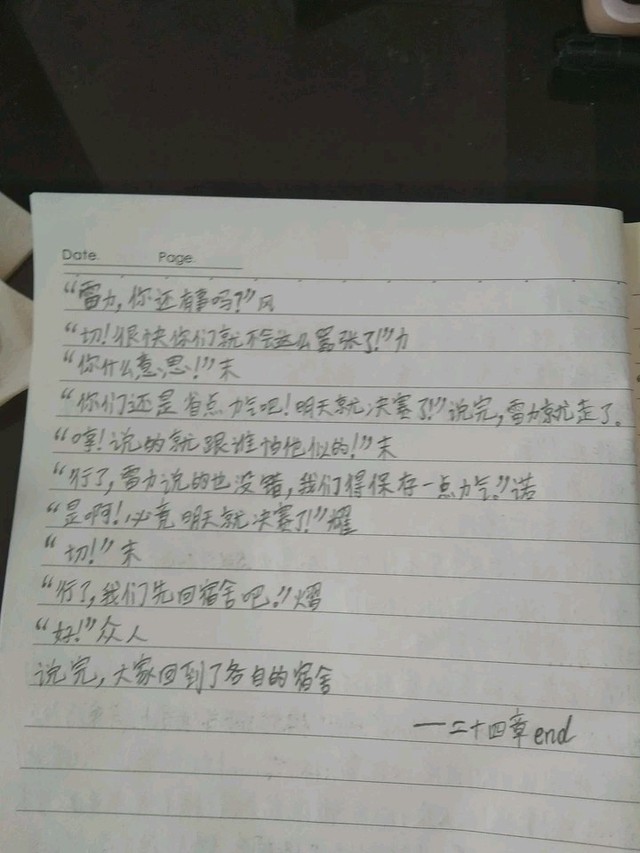 Date.  Page.
“雷力，你还有事吗？”风
“切！很快你们就不会这么嚣张了！”力
“你什么意思！”末
“你们还是省点力气吧！明天就决赛了！”说完，雷力就走了。
“哼！说的就跟谁怕他似的！”末
“行了，雷力说的也没错，我们得保存一点力气。”诺
“是啊！必竟明天就决赛了！”耀
“切！”末
“行了，我们先回宿舍吧。”熠
“好！”众人
说完，大家回到了各自的宿舍
—二十四章end